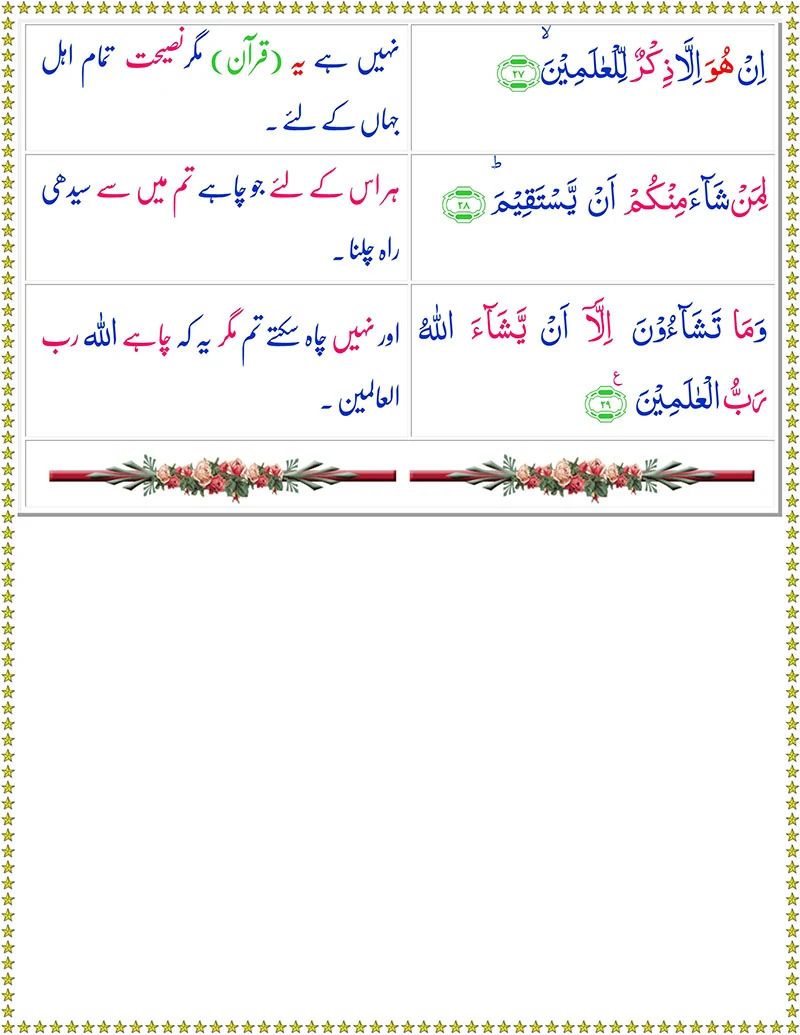 اِنْ هُوَ اِلَّا ذِكْرٌ لِّلْعٰلَمِيْنَ ۙ ۲۷
نہیں ہے یہ (قرآن) مگر نصیحت تمام اہل
جہاں کے لئے ۔
لِمَنْ شَآءَ مِنْكُمْ اَنْ يَّسْتَقِيْمَ ؕ ۲۸
ہر اس کے لئے جو چاہے تم میں سے سیدھی
راہ چلنا ۔
وَمَا تَشَآءُوْنَ اِلَّآ اَنْ يَّشَآءَ اللّٰهُ
رَبُّ الْعٰلَمِيْنَ ع ۲۹
اور نہیں چاہ سکتے تم مگر یہ کہ چاہے اللہ رب
العالمین ۔